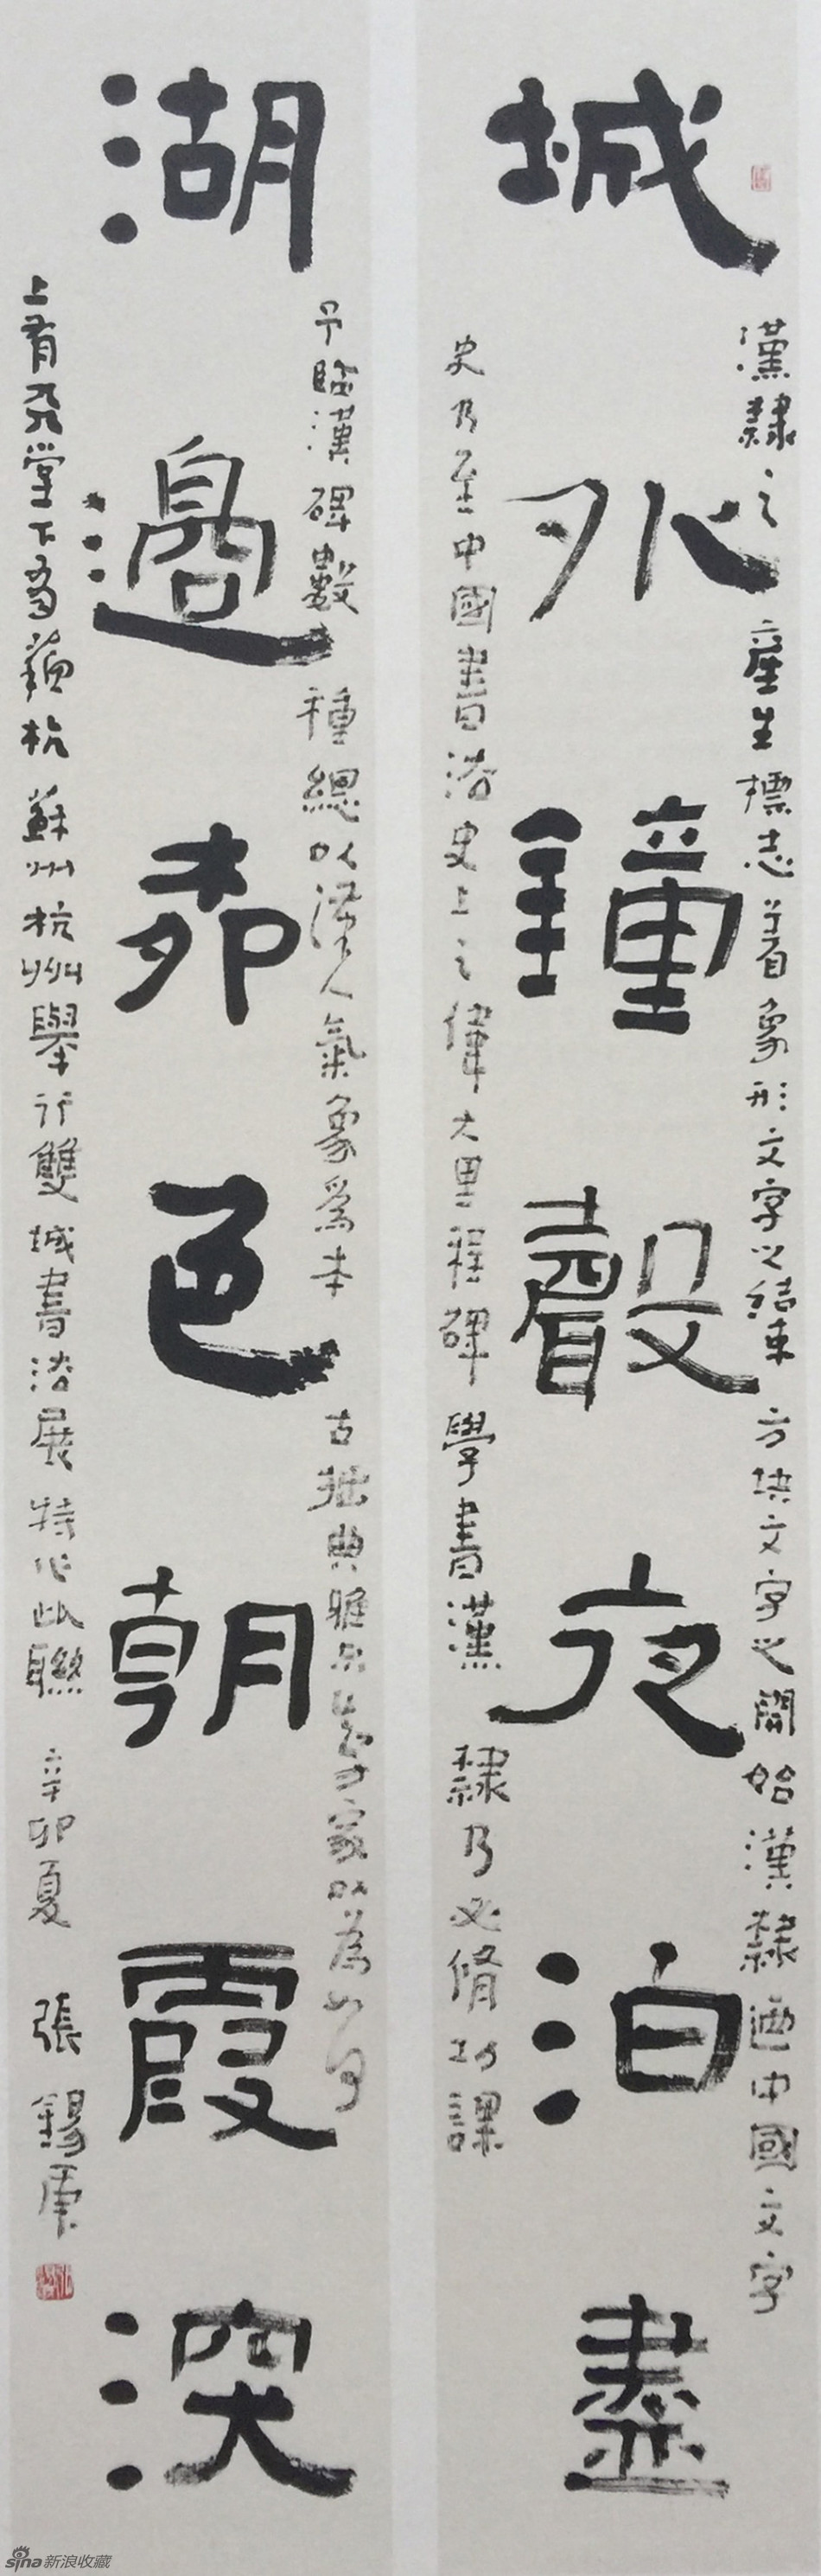 漢隸之產生標志着象形文字之結束方块文字之開始漢隸迺中國文字
城外鐘聲夜泊盡
史乃至中國書法史上之偉大里程碑學書漢隸乃必脩功課
予臨漢碑數十種總以漢人氣象爲本古拙典雅家以為如何
湖邊柳色朝霞深
上有天堂下有蘇杭蘇州杭州舉行雙城書法展特作此聯辛卯夏張錫庚
sina新浪收藏